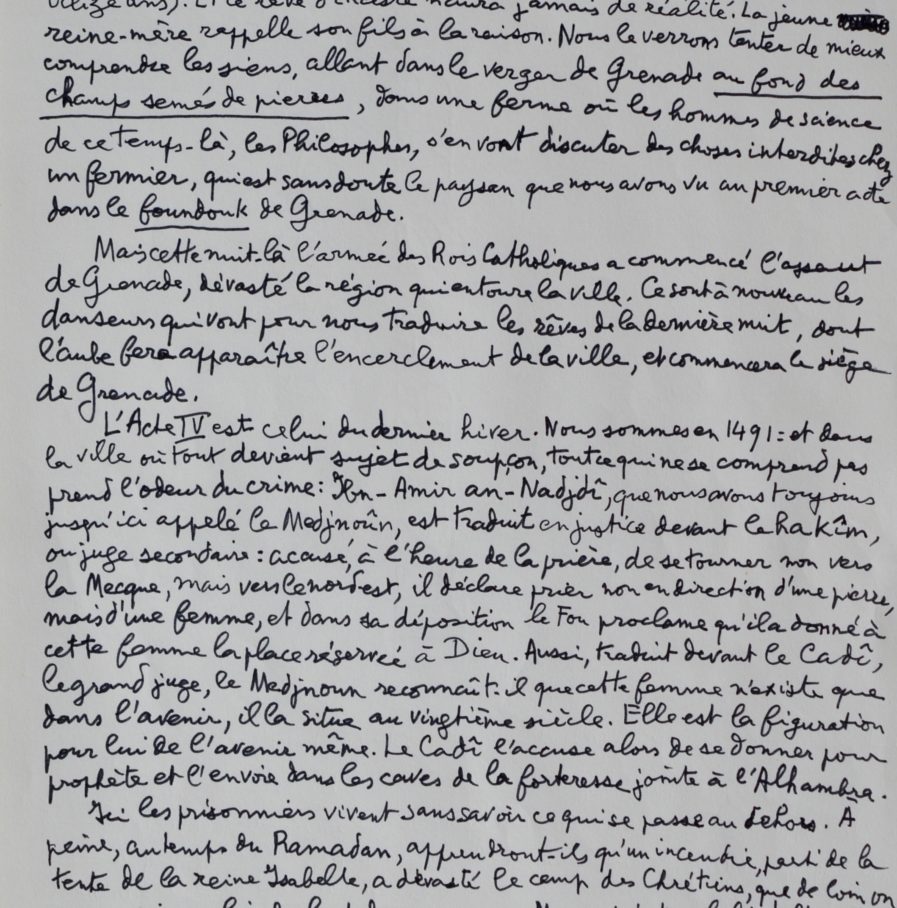 jamais de réalité. La jeune
reine-mère rappelle son fils à la raison. Nous le verrons tenter de mieux
comprendre les siens, allant dans le verger de Grenade au fond des
champs semés de pierres, dans une ferme où les hommes de science
de ce temps-là, les Philosophes, s'en vont discuter des choses interdites chez
un fermier, qui est sans doute le paysan que nous avons vu au premier acte
dans le foundouk de Grenade.
Mais cette nuit-là l'armée des Rois Catholiques a commencé l'assaut
de Grenade, dévasté la région qui entoure la ville. Ce sont à nouveau les
danseurs qui vont pour nous traduire les rêves de la dernière nuit, dont
l'aube fera apparaître l'encerclement de la ville, et commencera le siège
de Grenade.
L'Acte IV est celui du dernier hiver. Nous sommes en 1491 : et dans
la ville où tout devient sujet de soupçon, tout ce qui ne se comprend pas
prend l'odeur du crime : Ibn-Amir an-Nadjdî, que nous avons toujours
jusqu'ici appelé le Medjnoûn, est traduit en justice devant le hakîm,
ou juge secondaire : accusé, à l'heure de la prière, de se tourner non vers
la Mecque, mais vers le nord-est, il déclare prier non en direction d'une pierre,
mais d'une femme, et dans sa déposition le Fou proclame qu'il a donné à
cette femme la place réservée à Dieu. Aussi, traduit devant le Cadî,
le grand juge, le Medjnoun reconnaît-il que cette femme n'existe que
dans l'avenir, il la situe au vingtième siècle. Elle est la figuration
pour lui de l'avenir même. Le Cadî l'accuse alors de se donner pour
prophète et l'envoie dans les caves de la forteresse jointe à l'Alhambra.
Ici les prisonniers vivent sans savoir ce qui se passe au dehors. À
peine, au temps du Ramadan, apprendront-ils qu'un incendie, parti de la
tente de la reine Isabelle, a dévasté le camp des Chrétiens, que de loin on